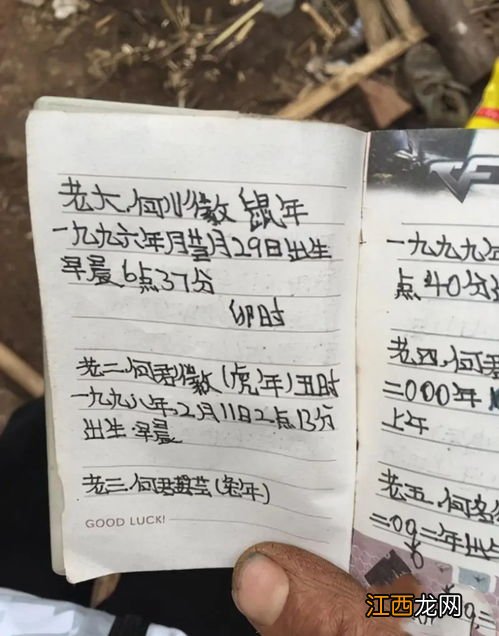 老大.何川徽 鼠年
一九九六年月廿月29日出生
早晨6点37分
卯时
老二.何君徽(虎年)丑时
一九九八年.2月11日2点13分
出生 早晨
老三.何君(兔年)
GOOD LUCK!
一九九九年
点40分
老四.何君
二000年
上午
老五.何
二00二年出生
江西龙网